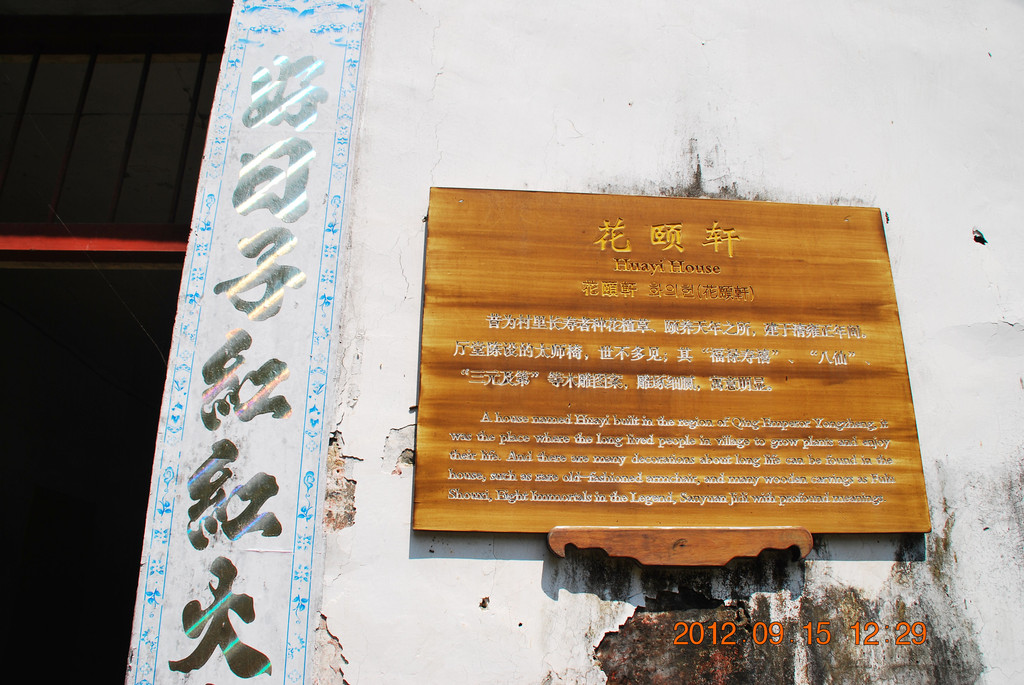 好日子红红火
花颐轩
Huayi House
花頤軒 화이헌(花頤軒)
昔为村里长寿者种花植草、颐养天年之所，建于清雍正年间。
厅堂陈设的太师椅，世不多见；其“福禄寿禧”、“八仙”、
“三元及第”等木雕图案，雕琢细腻，寓意明显。
A house named Huayi built in the region of Qing Emperor Yongzheng, it
was the place where the long lived people in village to grow plants and enjoy
their life. And there are many decorations about long life can be found in the
house, such as rare old-fashioned armchair, and many wooden carvings as Fulu
Shouxi, Eight Immortals in the Legend, Sanyuan Jidi with profound meanings
2012 09 15 12:29